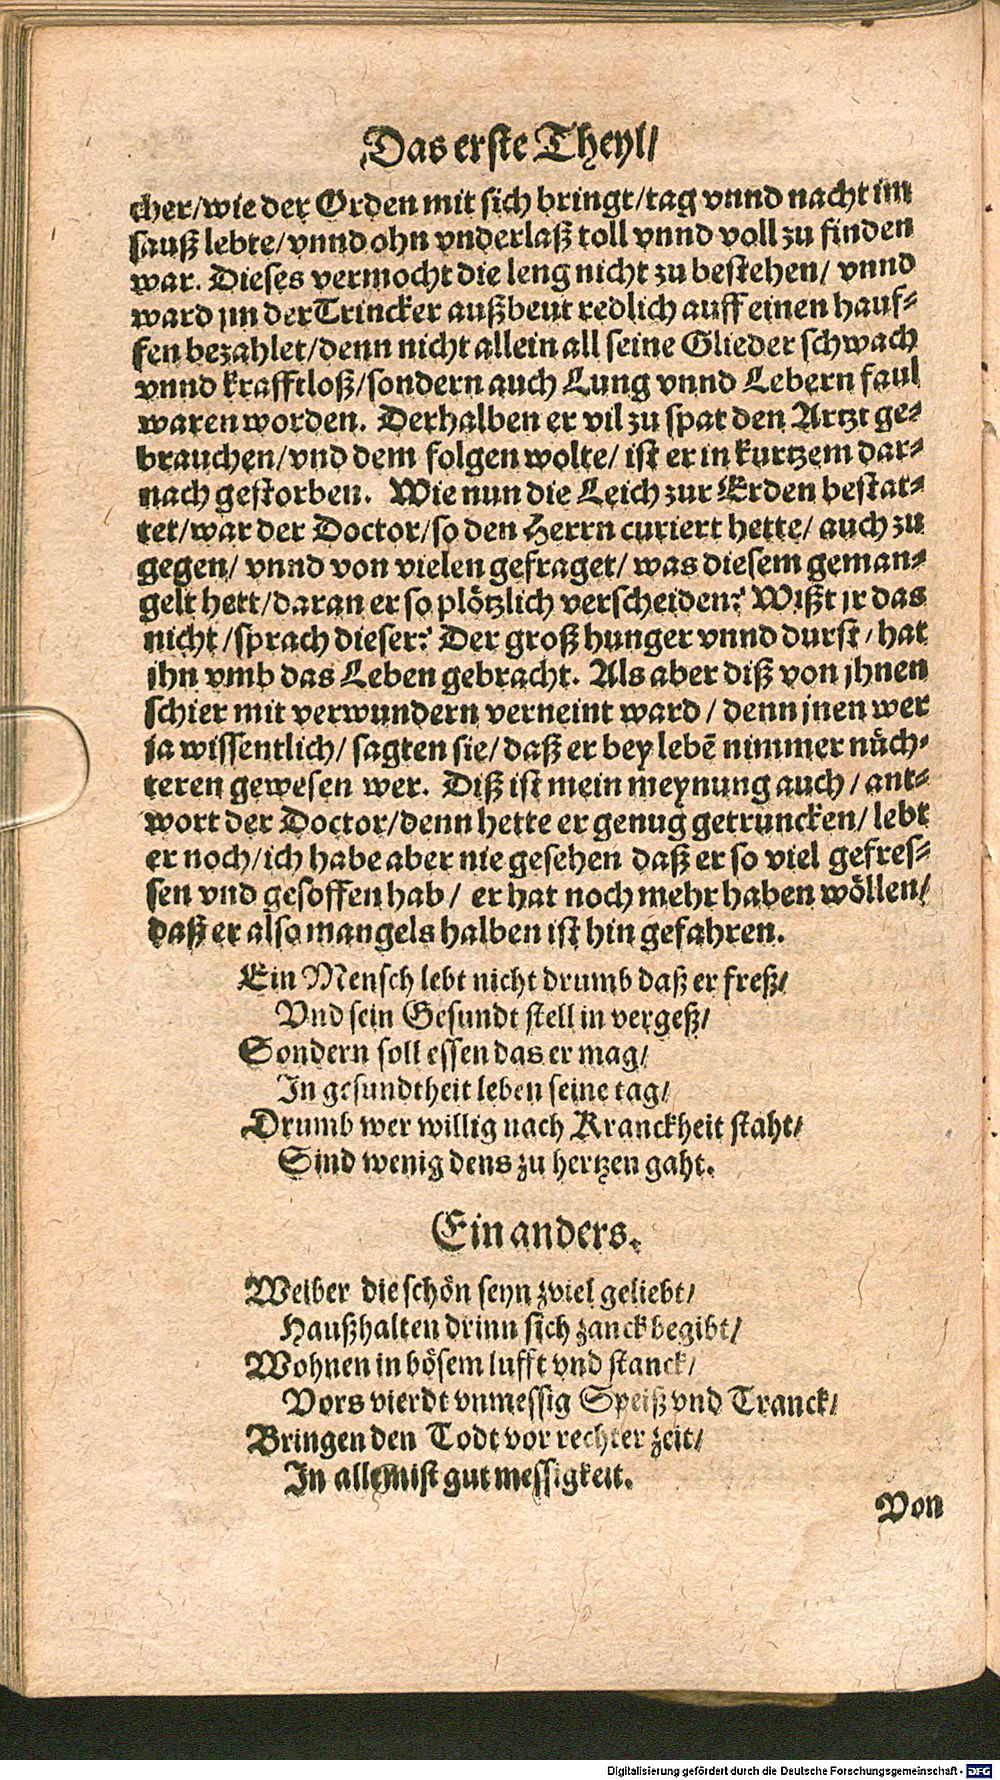 Das erste Theyl/
cher/wie der Orden mit sich bringt/tag vnnd nacht im
sauß lebte/vnnd ohn vnderlaß toll vnnd voll zu finden
war. Dieses vermocht die leng nicht zu bestehen/ vnnd
ward jm der Trincker außbeut redlich auff einen hauf-
fen bezahlet/denn nicht allein all seine Glieder schwach
vnnd krafftloß/sondern auch Lung vnnd Lebern faul
waren worden. Derhalben er vil zu spat den Artzt ge-
brauchen/vnd dem folgen wolte/ ist er in kurtzem dar-
nach gestorben. Wie nun die Leich zur Erden bestat-
tet/war der Doctor/so den Herrn curiert hette/ auch zu
gegen/ vnnd von vielen gefraget/ was diesem geman-
gelt hett/daran er so plötzlich verscheiden? Wißt jr das
nicht/sprach dieser? Der groß hunger vnnd durst/hat
jhn vmb das Leben gebracht. Als aber diß von jhnen
schier mit verwundern verneint ward/ denn jnen wer
ja wissentlich/ sagten sie/ daß er bey lebē nimmer nüch-
teren gewesen wer. Diß ist mein meynung auch/ ant-
wort der Doctor/denn hette er genug getruncken/ lebt
er noch/ich habe aber nie gesehen daß er so viel gefres-
sen vnd gesoffen hab/ er hat noch mehr haben wöllen/
daß er also mangels halben ist hin gefahren.
Ein Mensch lebt nicht drumb daß er freß/
Vnd sein Gesundt stell in vergeß/
Sondern soll essen das er mag/
In gesundtheit leben seine tag/
Drumb wer willig nach Kranckheit staht/
Sind wenig dens zu hertzen gaht.
Ein anders.
Weiber die schön seyn zviel geliebt/
Haußhalten drinn sich zanck begibt/
Wohnen in bösem lufft vnd stanck/
Vors vierdt vnmessig Speiß vnd Tranck/
Bringen den Todt vor rechter zeit/
In allem ist gut messigkeit.
Von
Digitalisierung gefördert durch die Deutsche Forschungsgemeinschaft - DFG